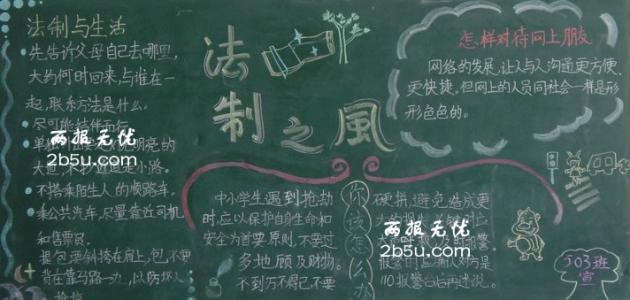 法制与生活
先告诉父母自己去哪里,
大约何时回来,与谁在一
起,联系方法是什么。
尽可能结伴而行。
大道,不抄近道走小路。
不搭乘陌生人的顺路车。
乘公共汽车,尽量靠近司机
和售票员。
两报无优
2b5u.com
法
制之風
怎样对待网上朋友
网络的发展,让人与人沟通更方便,
更快捷,但网上的人员同社会一样是形
形色色的。
中小学生遇到抢劫
时,应以保护自身生命和
安全为首要原则,不要过
多地顾及财物。
不到万不得已不要
你该怎么办
硬拼,避免造成更
两报无优
2b5u.com
503班
宣